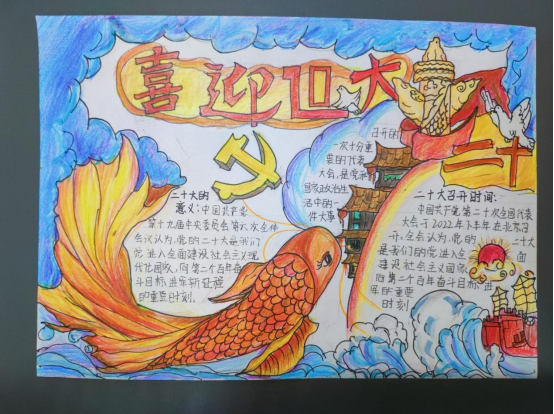 喜迎
大
二十
二十大的
意义：中国共产党
第十九届中央委员会第六次全体
会议认为，党的二十大是我们
党进入全面建设社会主义现
代化国家，向第二个百年奋
斗目标进军新征程
的重要时刻。
召开的
一次十分重
要的代表
大会，是党和
国家政治生
活中的一
件大事
二十大召开时间：
中国共产党第二十次全国代表
大会于2022年下半年在北京召
开，全会认为，党的二十大
是我们党进入全面
建设社会主义国家
向第二个百年奋斗目标进
军的重要
时刻